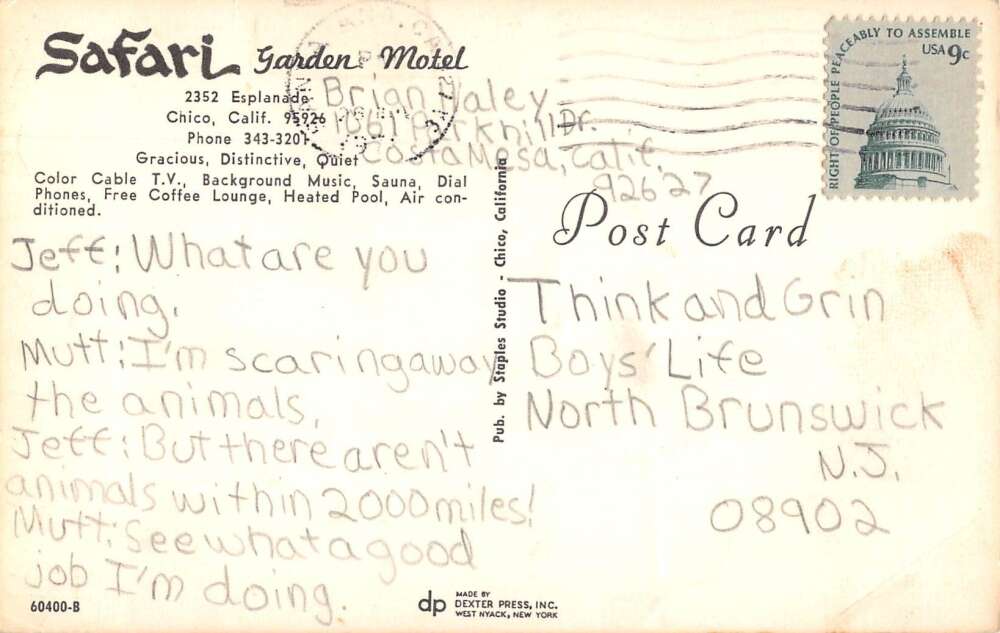 Safari Garden Motel
2352 Esplanade
Chico, Calif. 95926
Phone 343-3201
Gracious, Distinctive, Quiet
Color Cable T.V., Background Music, Sauna, Dial
Phones, Free Coffee Lounge, Heated Pool, Air con-
ditioned.
Jeff: What are you
doing.
Mutt: I'm scaring away
the animals.
Jeff: But there aren't
animals within 2000 miles!
Mutt: See what a good
job I'm doing.
60400-B
Pub. by Staples Studio - Chico, California
dp
MADE BY
DEXTER PRESS, INC.
WEST NYACK, NEW YORK
Brian Haley
1661 Parkhill Dr.
Costa Mesa, Calif.
92627
RIGHT OF PEOPLE PEACEABLY TO ASSEMBLE
USA 9c
Post Card
Think and Grin
Boys' Life
North Brunswick
N.J.
08902